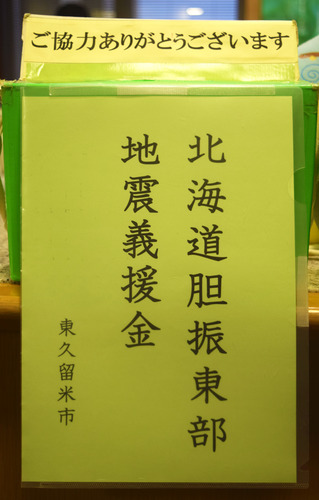 ご協力ありがとうございます
北海道胆振東部
地震義援金
東久留米市